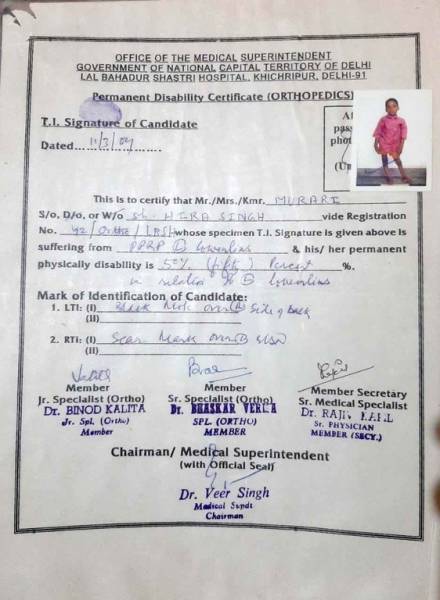 OFFICE OF THE MEDICAL SUPERINTENDENT
GOVERNMENT OF NATIONAL CAPITAL TERRITORY OF DELHI
LAL BAHADUR SHASTRI HOSPITAL, KHICHRIPUR, DELHI-91
Permanent Disability Certificate (ORTHOPEDICS)
T.I. Signature of Candidate
Dated
This is to certify that Mr./Mrs./Kmr. MURARI
S/o, D/o, or W/o Sh. HIRA SINGH vide Registration
No. 42/Ortho/LBSH whose specimen T.I. Signature is given above is
suffering from PPRP & his/her permanent
physically disability is percent %.
in relation to
Mark of Identification of Candidate:
1. LTI: (I) Black Mole over side of back
(II)
2. RTI: (I) Scar Mark over
(II)
Member Member Member Secretary
Jr. Specialist (Ortho) Sr. Specialist (Ortho) Sr. Medical Specialist
Dr. BINOD KALITA Dr. BHASKAR VERMA Dr. RAJIV
Jr. Spl. (Ortho) SPL. (ORTHO) Sr. PHYSICIAN
Member MEMBER MEMBER (SECY.)
Chairman/ Medical Superintendent
(with Official Seal)
Dr. Veer Singh
Medical Supdt
Chairman